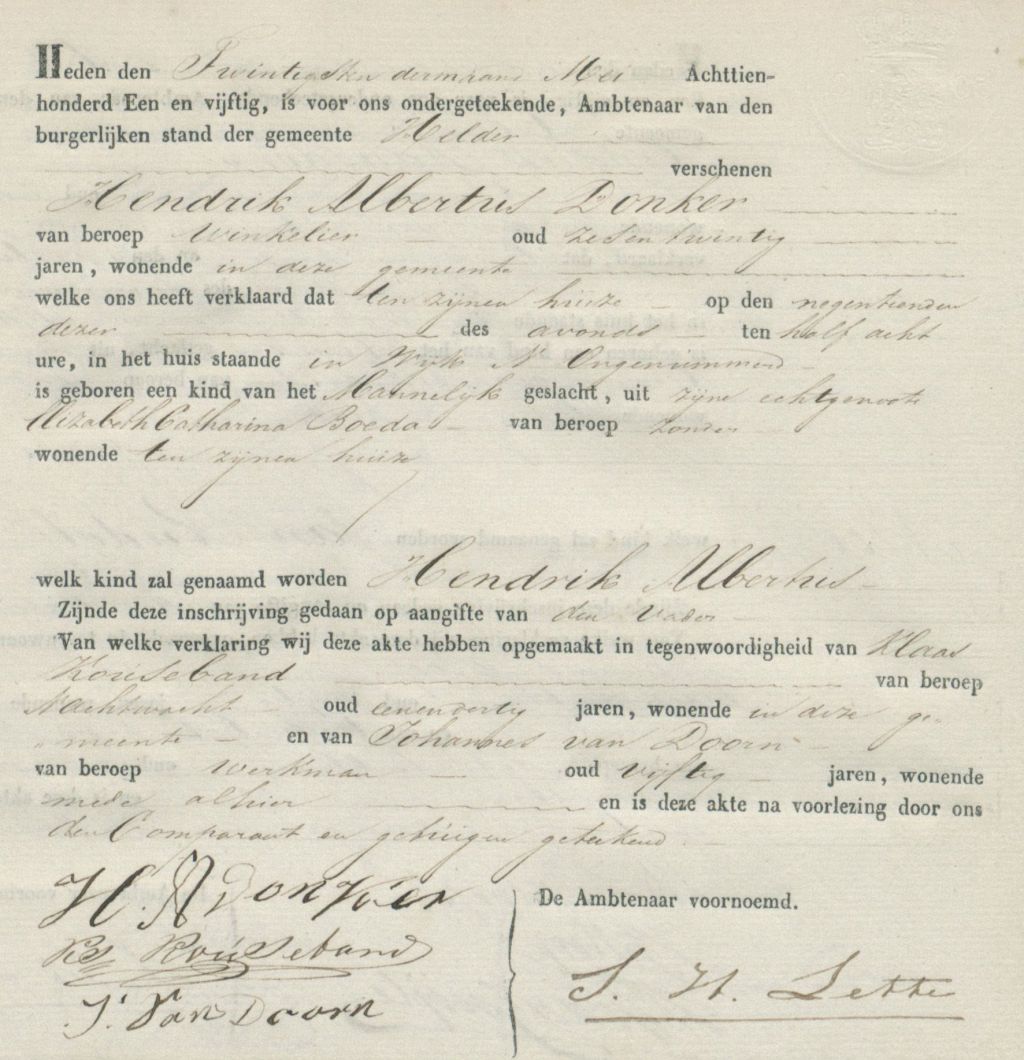 Heden den Twintigsten dermaand Mei Achttien-
honderd Een en vijftig, is voor ons ondergeteekende, Ambtenaar van den
burgerlijken stand der gemeente Helder
verschenen
Hendrik Albertus Donker
van beroep Winkelier oud zesentwintig
jaren, wonende in deze gemeente
welke ons heeft verklaard dat ten zijnen huize op den negentienden
dezer des avonds ten half acht
ure, in het huis staande in Wijk N Ongenummerd
is geboren een kind van het Mannelijk geslacht, uit zijne echtgenoote
Elizabeth Catharina Boeda van beroep zonder
wonende ten zijnen huize
welk kind zal genaamd worden Hendrik Albertus
Zijnde deze inschrijving gedaan op aangifte van den vader
Van welke verklaring wij deze akte hebben opgemaakt in tegenwoordigheid van Klaas
Kouseband van beroep
Nachtwacht oud eenenveertig jaren, wonende in deze ge„
„meente en van Johannes van Doorn
van beroep werkman oud vijftig jaren, wonende
mede alhier en is deze akte na voorlezing door ons
den Comparant en getuigen geteekend
H. A Donker
De Ambtenaar voornoemd.
Ks Kouseband
S. H. Lette
J. Van Doorn